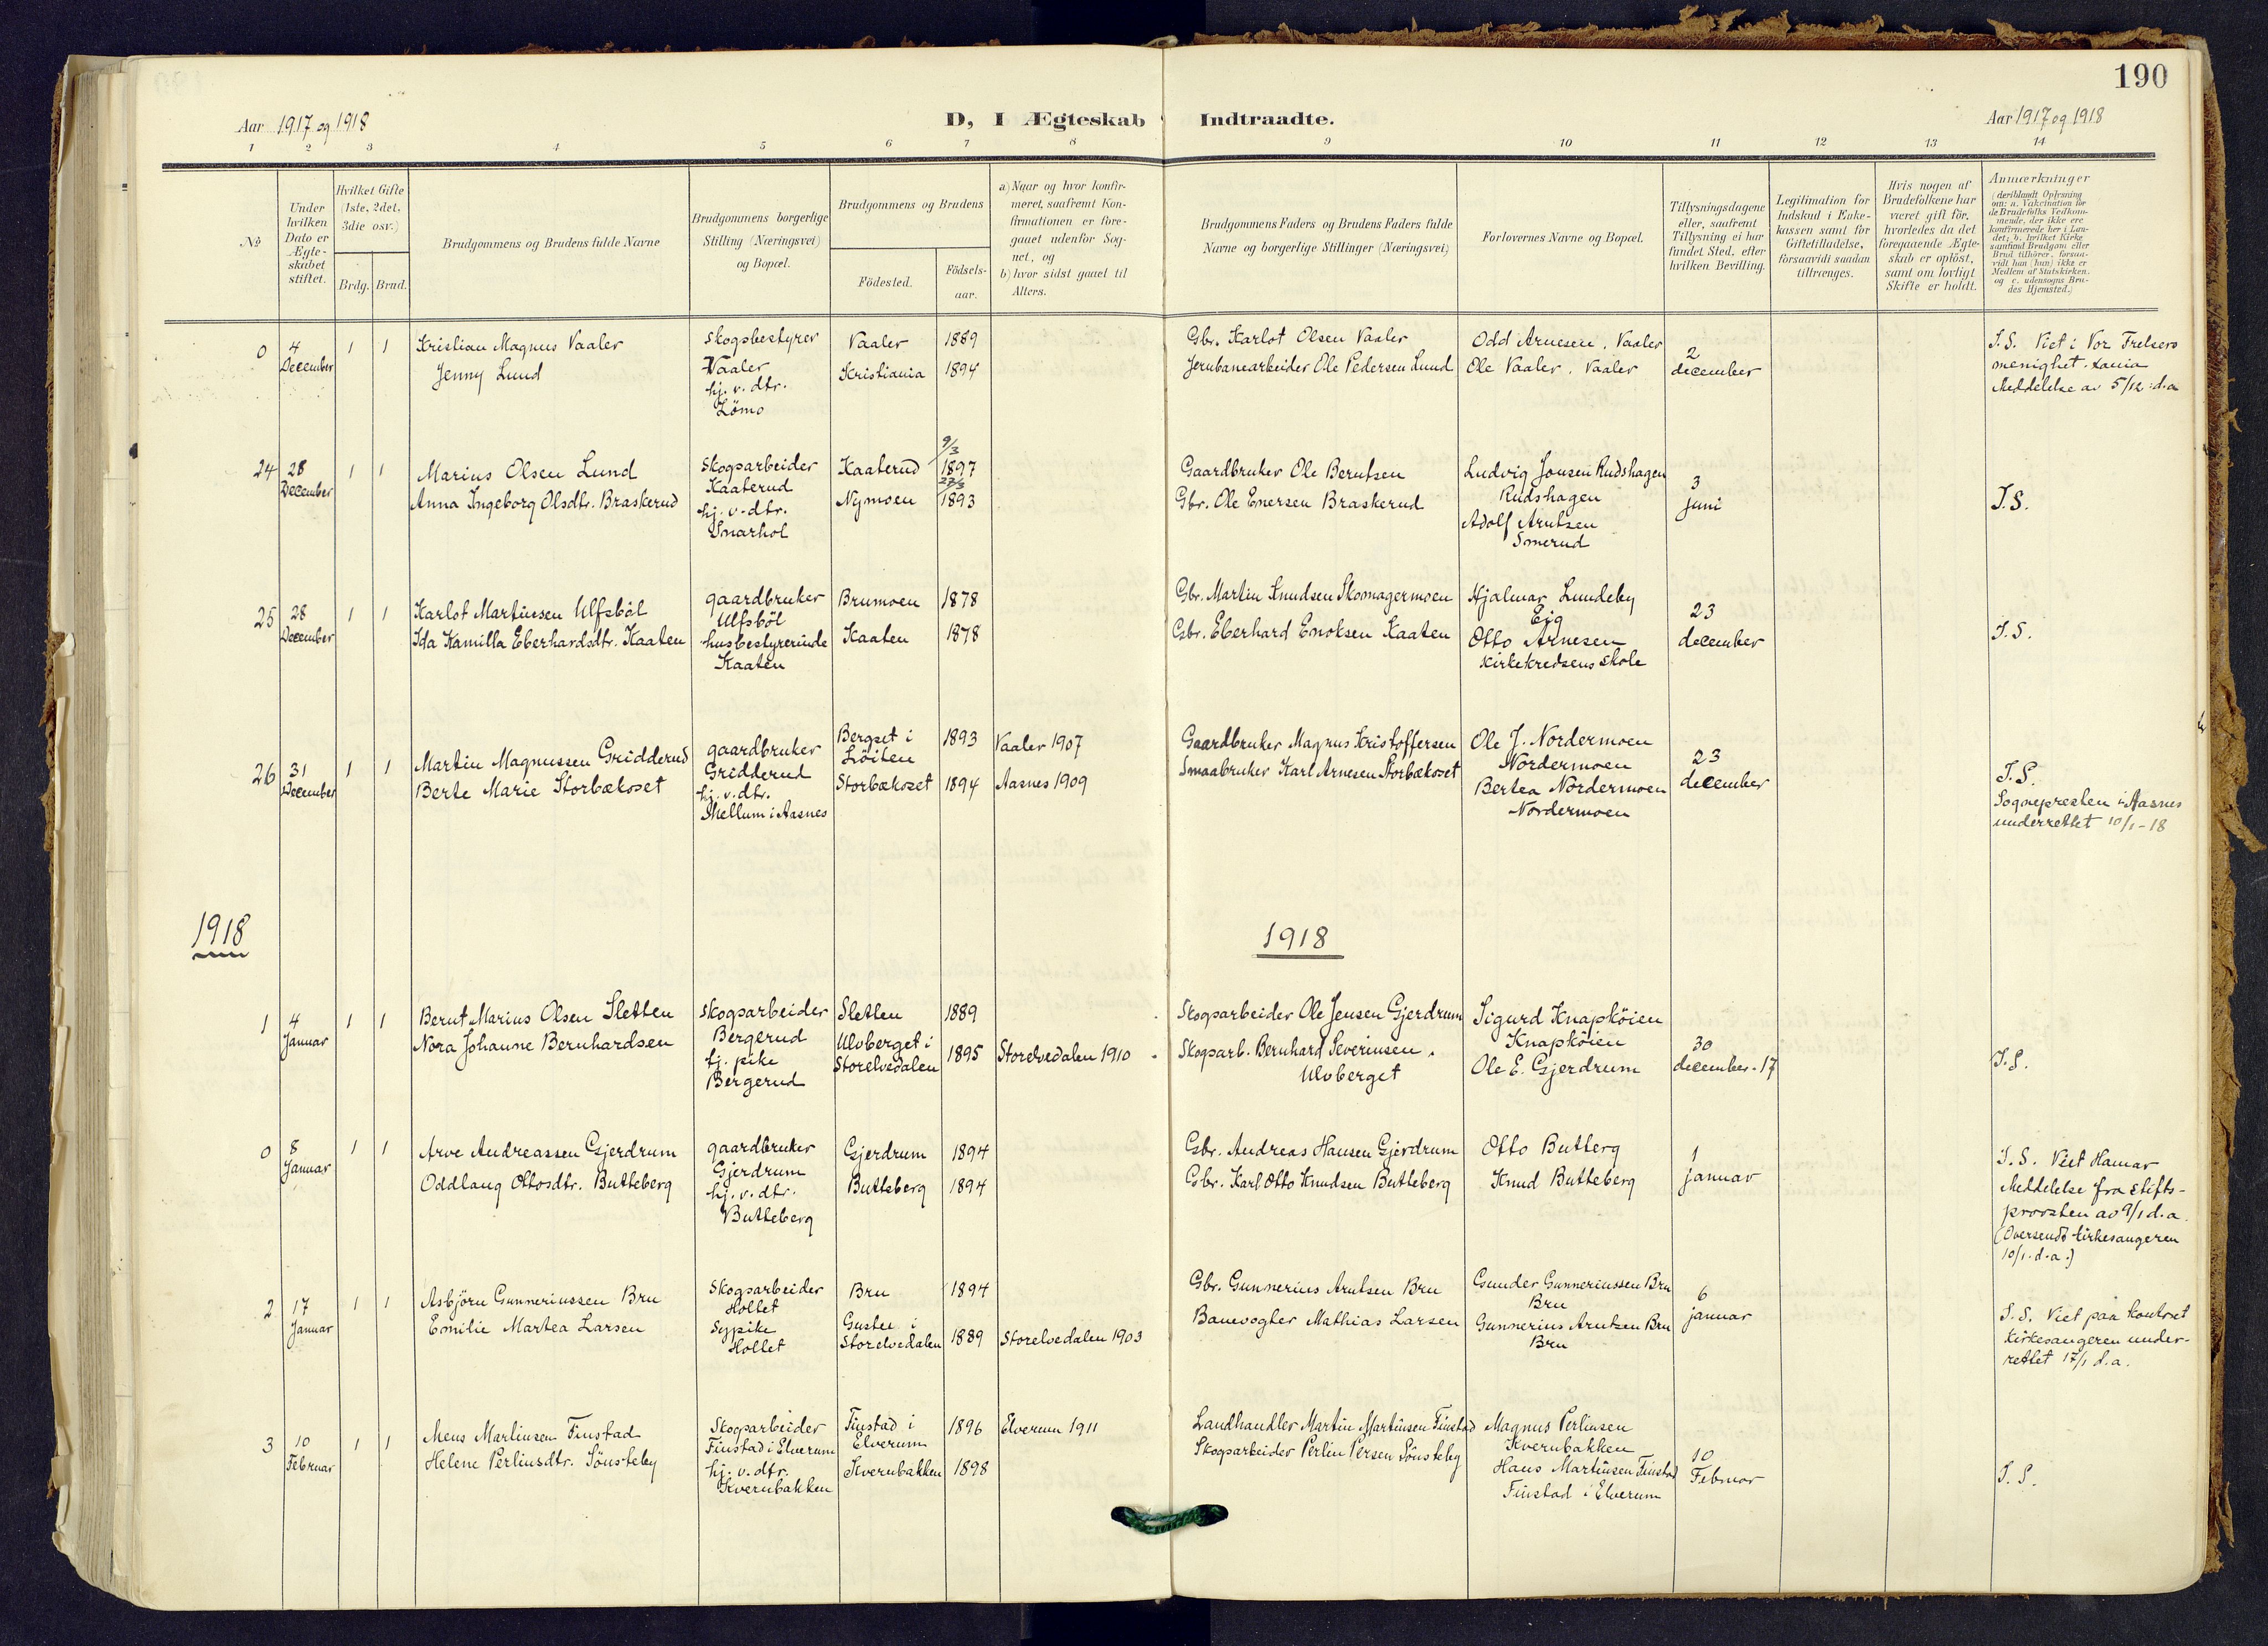 190
Aar 1917 og 1918
D, I Ægteskab Indtraadte.
Aar 1917 og 1918
1 2 3 4 5 6 7 8 9 10 11 12 13 14
No
Under hvilken Dato er Ægteskabet stiftet.
Hvilket Gifte (1ste, 2det, 3die osv.)
Brdg. Brud.
Brudgommens og Brudens fulde Navne
Brudgommens borgerlige Stilling (Næringsvei) og Bopæl.
Brudgommens og Brudens
Födested.
Födsels-aar.
a) Naar og hvor konfirmeret, saafremt Konfirmationen er foregaaet udenfor Sognet, og
b) hvor sidst gaaet til Alters.
Brudgommens Faders og Brudens Faders fulde Navne og borgerlige Stillinger (Næringsvei)
Forlovernes Navne og Bopæl.
Tillysningsdagene eller, saafremt Tillysning ei har fundet Sted, efter hvilken Bevilling.
Legitimation for Indskud i Enkekassen samt for Giftetilladelse, forsaavidt saadan tiltrænges.
Hvis nogen af Brudefolkene har været gift för, hvorledes da det foregaaende Ægteskab er oplöst, samt om lovligt Skifte er holdt.
Anmærkninger
(deriblandt Oplysning om: a. Vakcination for de Brudefolks Vedkommende, der ikke ere konfirmerede her i Landet; b. hvilket Kirkesamfund Brudgom eller Brud tilhörer, forsaavidt han (hun) ikke er Medlem af Statskirken, og c. udensogns Brudes Hjemsted.)
0 4 December 1 1
Kristian Magnus Vaaler
Jenny Lund
Skogsbestyrer
Vaaler
hj. v. dtr.
Lömo
Vaaler 1889
Kristiania 1894
Gbr. Karlot Olsen Vaaler
Jernbanearbeider Ole Pedersen Lund
Odd Arnesen, Vaaler
Ole Vaaler, Vaaler
2 december
I.S. Viet i Vor Frelsers
menighet. Xania
Meddelelse av 5/12 d.a
24 28 December 1 1
Marius Olsen Lund
Anna Ingeborg Olsdtr. Braskerud
Skogsarbeider
Kaaterud
hj. v. dtr.
Snarhol
Kaaterud 9/3 1897
Nymoen 27/3 1893
Gaardbruker Ole Berntsen
Gbr. Ole Enersen Braskerud
Ludvig Jonsen Rudshagen
Rudshagen
Adolf Arntsen
Smerud
3 juni
I.S.
25 28 December 1 1
Karlot Martinsen Ulfsböl
Ida Kamilla Eberhardsdtr. Kaaten
gaardbruker
Ulfsböl
husbestyrerinde
Kaaten
Brumoen 1878
Kaaten 1878
Gbr. Martin Knudsen Skomagermoen
Gbr. Eberhard Enoksen Kaaten
Hjalmar Lundeby
Eig
Otto Arnesen
Kirkekredsens skole
23 december
I.S.
26 31 December 1 1
Martin Magnussen Gridderud
Berte Marie Storbækoset
gaardbruker
Gridderud
hj. v. dtr.
Mellum i Aasnes
Bergset i
Löiten 1893 Vaaler 1907
Storbækoset 1894 Aasnes 1909
Gaardbruker Magnus Kristoffersen
Smaabruker Karl Arnesen Storbækoset
Ole J. Nordermoen
Nordermoen
Bertea Nordermoen
Nordermoen
23 december
I.S.
Sognepresten i Aasnes
underrettet 10/1-18
1918
1918
1 4 Januar 1 1
Bernt Marius Olsen Sletten
Nora Johanne Bernhardsen
Skogsarbeider
Bergerud
tj. pike
Bergerud
Sletten 1889
Ulvberget i
Storelvedalen 1895 Storelvedalen 1910
Skogsarbeider Ole Jensen Gjerdrum
Skogsarb. Bernhard Severinsen.
Ulvberget
Sigurd Knapköien
Knapköien
Ole E. Gjerdrum
30 december-17
I.S.
0 8 Januar 1 1
Arve Andreassen Gjerdrum
Oddlaug Ottosdtr. Butteberg
gaardbruker
Gjerdrum
hj. v. dtr.
Butteberg
Gjerdrum 1894
Butteberg 1894
Gbr. Andreas Hansen Gjerdrum
Gbr. Karl Otto Knudsen Butteberg
Otto Butberg
Knud Butteberg
1 januar
I.S. Viet Hamar
Meddelelse fra Stifts-
provsten av 9/1 d.a.
(Oversendt kirkesangeren
10/1. d.a.)
2 17 Januar 1 1
Asbjörn Gunneriussen Bru
Emilie Martea Larsen
Skogsarbeider
Holtet
Sypike
Holtet
Bru 1894
Gustee i
Storelvedalen 1889 Storelvedalen 1903
Gbr. Gunnerius Arntsen Bru
Banevogter Mathias Larsen
Gunder Gunneriussen Bru
Bru
Gunnerius Arntsen Bru
Bru
6 januar
I.S. Viet paa kontoret
Kirkesangeren under-
rettet 17/1 d.a.
3 10 Februar 1 1
Mens Martinsen Finstad
Helene Perlinsdtr. Sönsteby
Skogsarbeider
Finstad i Elverum
hj. v. dtr.
Kvernbakken
Finstad i
Elverum 1896 Elverum 1911
Kvernbakken 1898
Landhandler Martin Martinsen Finstad
Skogsarbeider Perlin Persen Sönsteby
Magnus Perlinsen
Kvernbakken
Hans Martinsen Finstad
Finstad i Elverum
10 Februar
I.S.